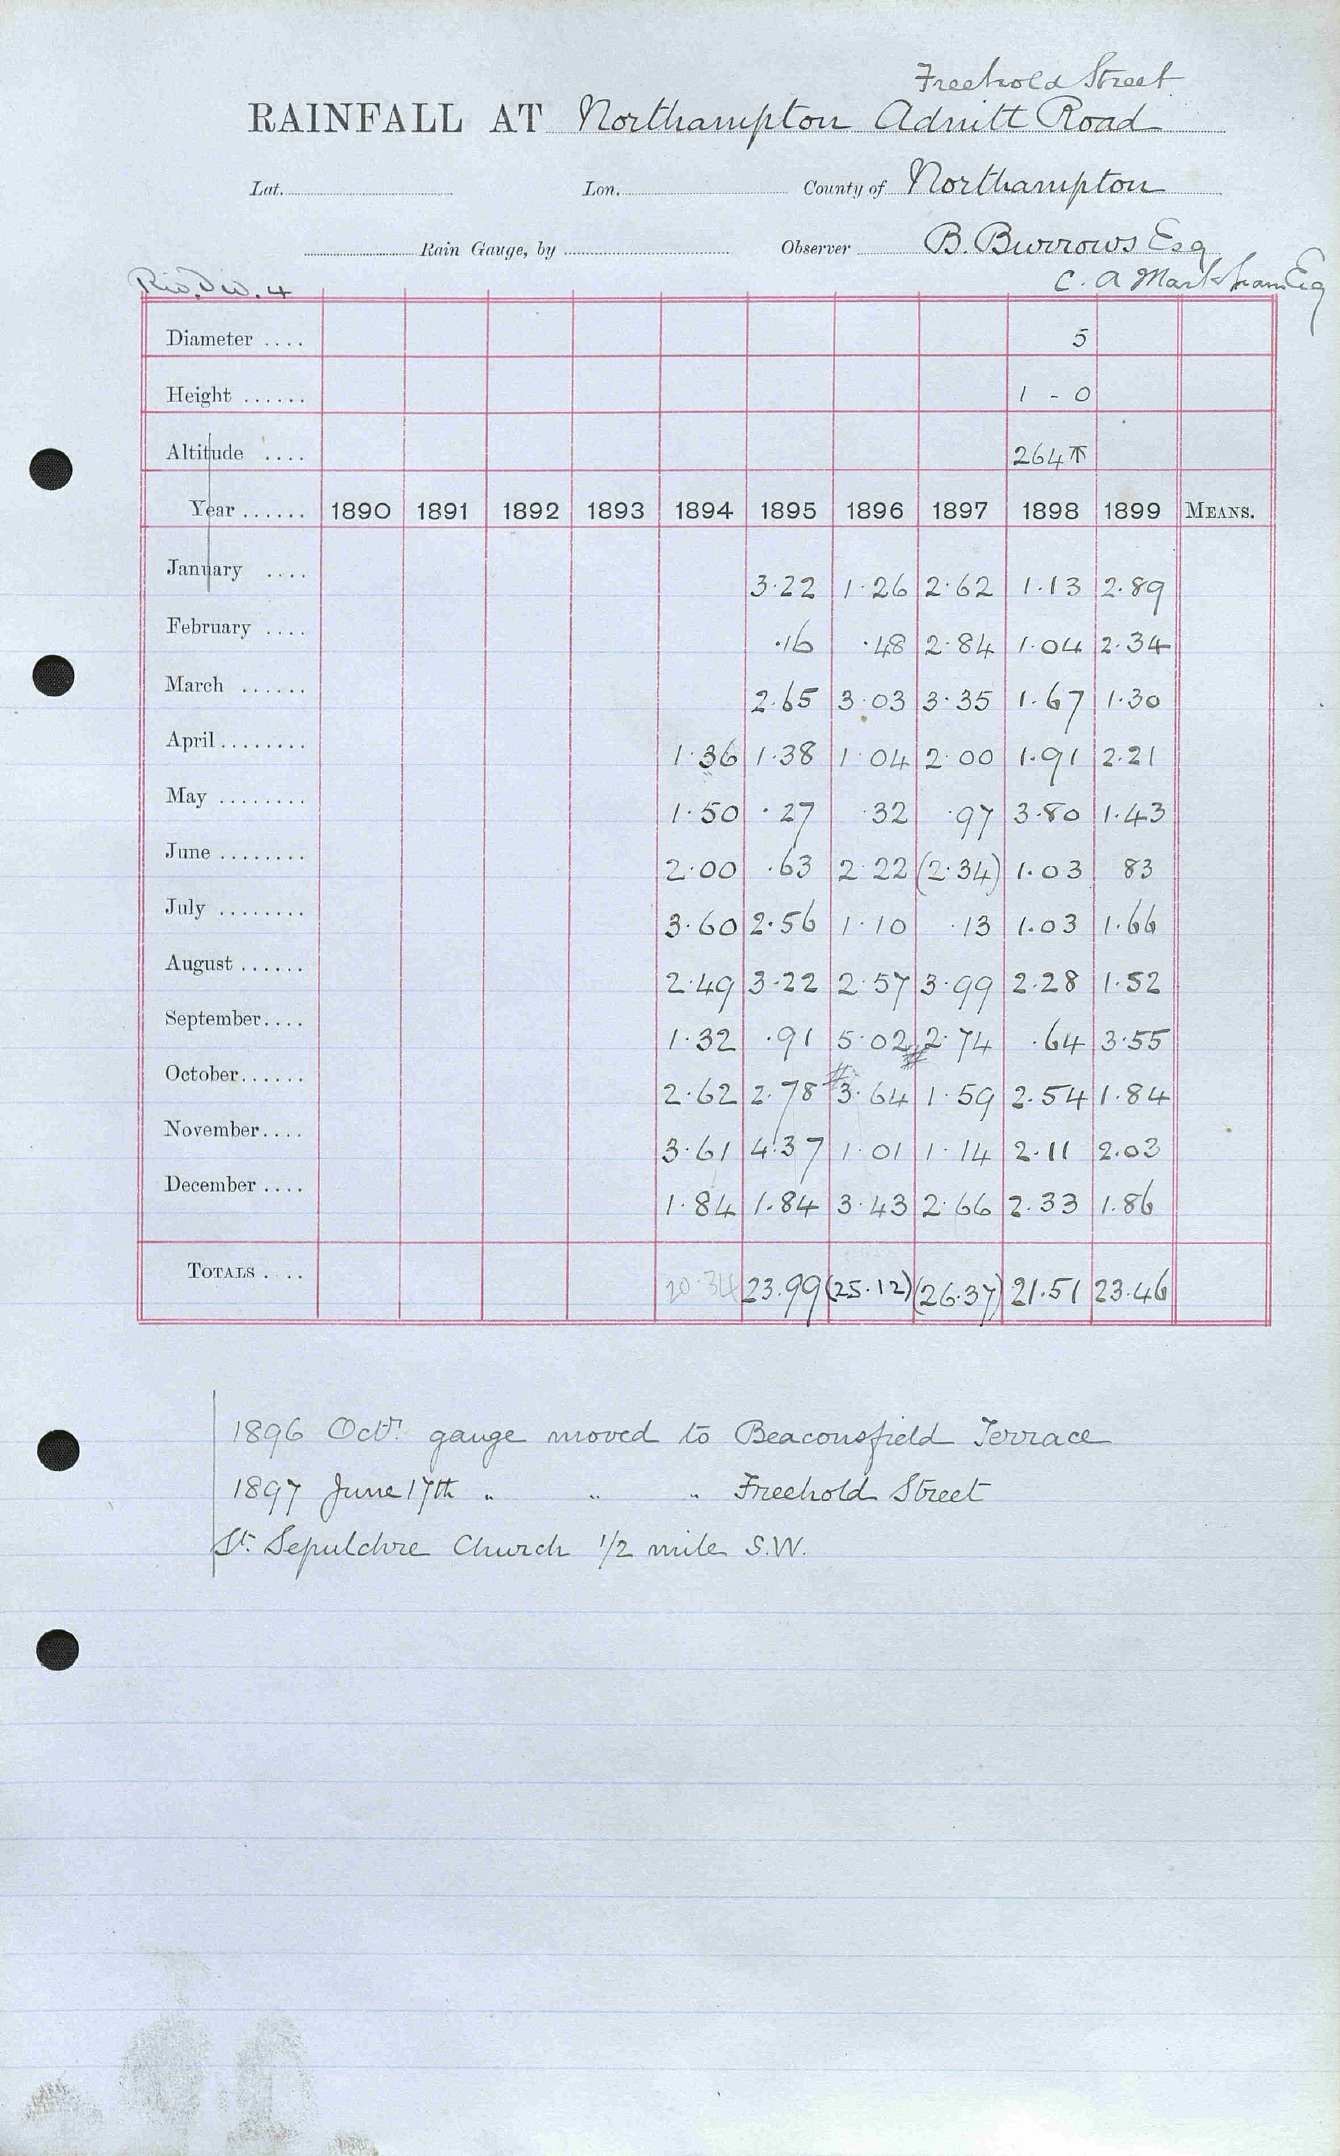 Freehold Street
RAINFALL AT Northampton Adnitt Road
Lat. Lon. County of Northampton
Rain Gauge, by Observer B. Burrows Esq
Riv. Div. 4 C. A Markham Esq
Diameter .... 5
Height ...... 1 - 0
Altitude .... 264 T
Year ...... 1890 1891 1892 1893 1894 1895 1896 1897 1898 1899 MEANS.
January .... 3.22 1.26 2.62 1.13 2.89
February .... .16 .48 2.84 1.04 2.34
March ...... 2.65 3.03 3.35 1.67 1.30
April ........ 1.36 1.38 1.04 2.00 1.91 2.21
May ........ 1.50 .27 .32 .97 3.80 1.43
June ........ 2.00 .63 2.22 (2.34) 1.03 83
July ........ 3.60 2.56 1.10 .13 1.03 1.66
August ...... 2.49 3.22 2.57 3.99 2.28 1.52
September.... 1.32 .91 5.02 # 2.74 .64 3.55
October...... 2.62 2.78 # 3.64 1.59 2.54 1.84
November.... 3.61 4.37 1.01 1.14 2.11 2.03
December .... 1.84 1.84 3.43 2.66 2.33 1.86
TOTALS .... 20.34 23.99 (25.12) (26.37) 21.51 23.46
1896 Octr. gauge moved to Beaconsfield Terrace
1897 June 17th " " " Freehold Street
St. Sepulchre Church 1/2 mile S.W.